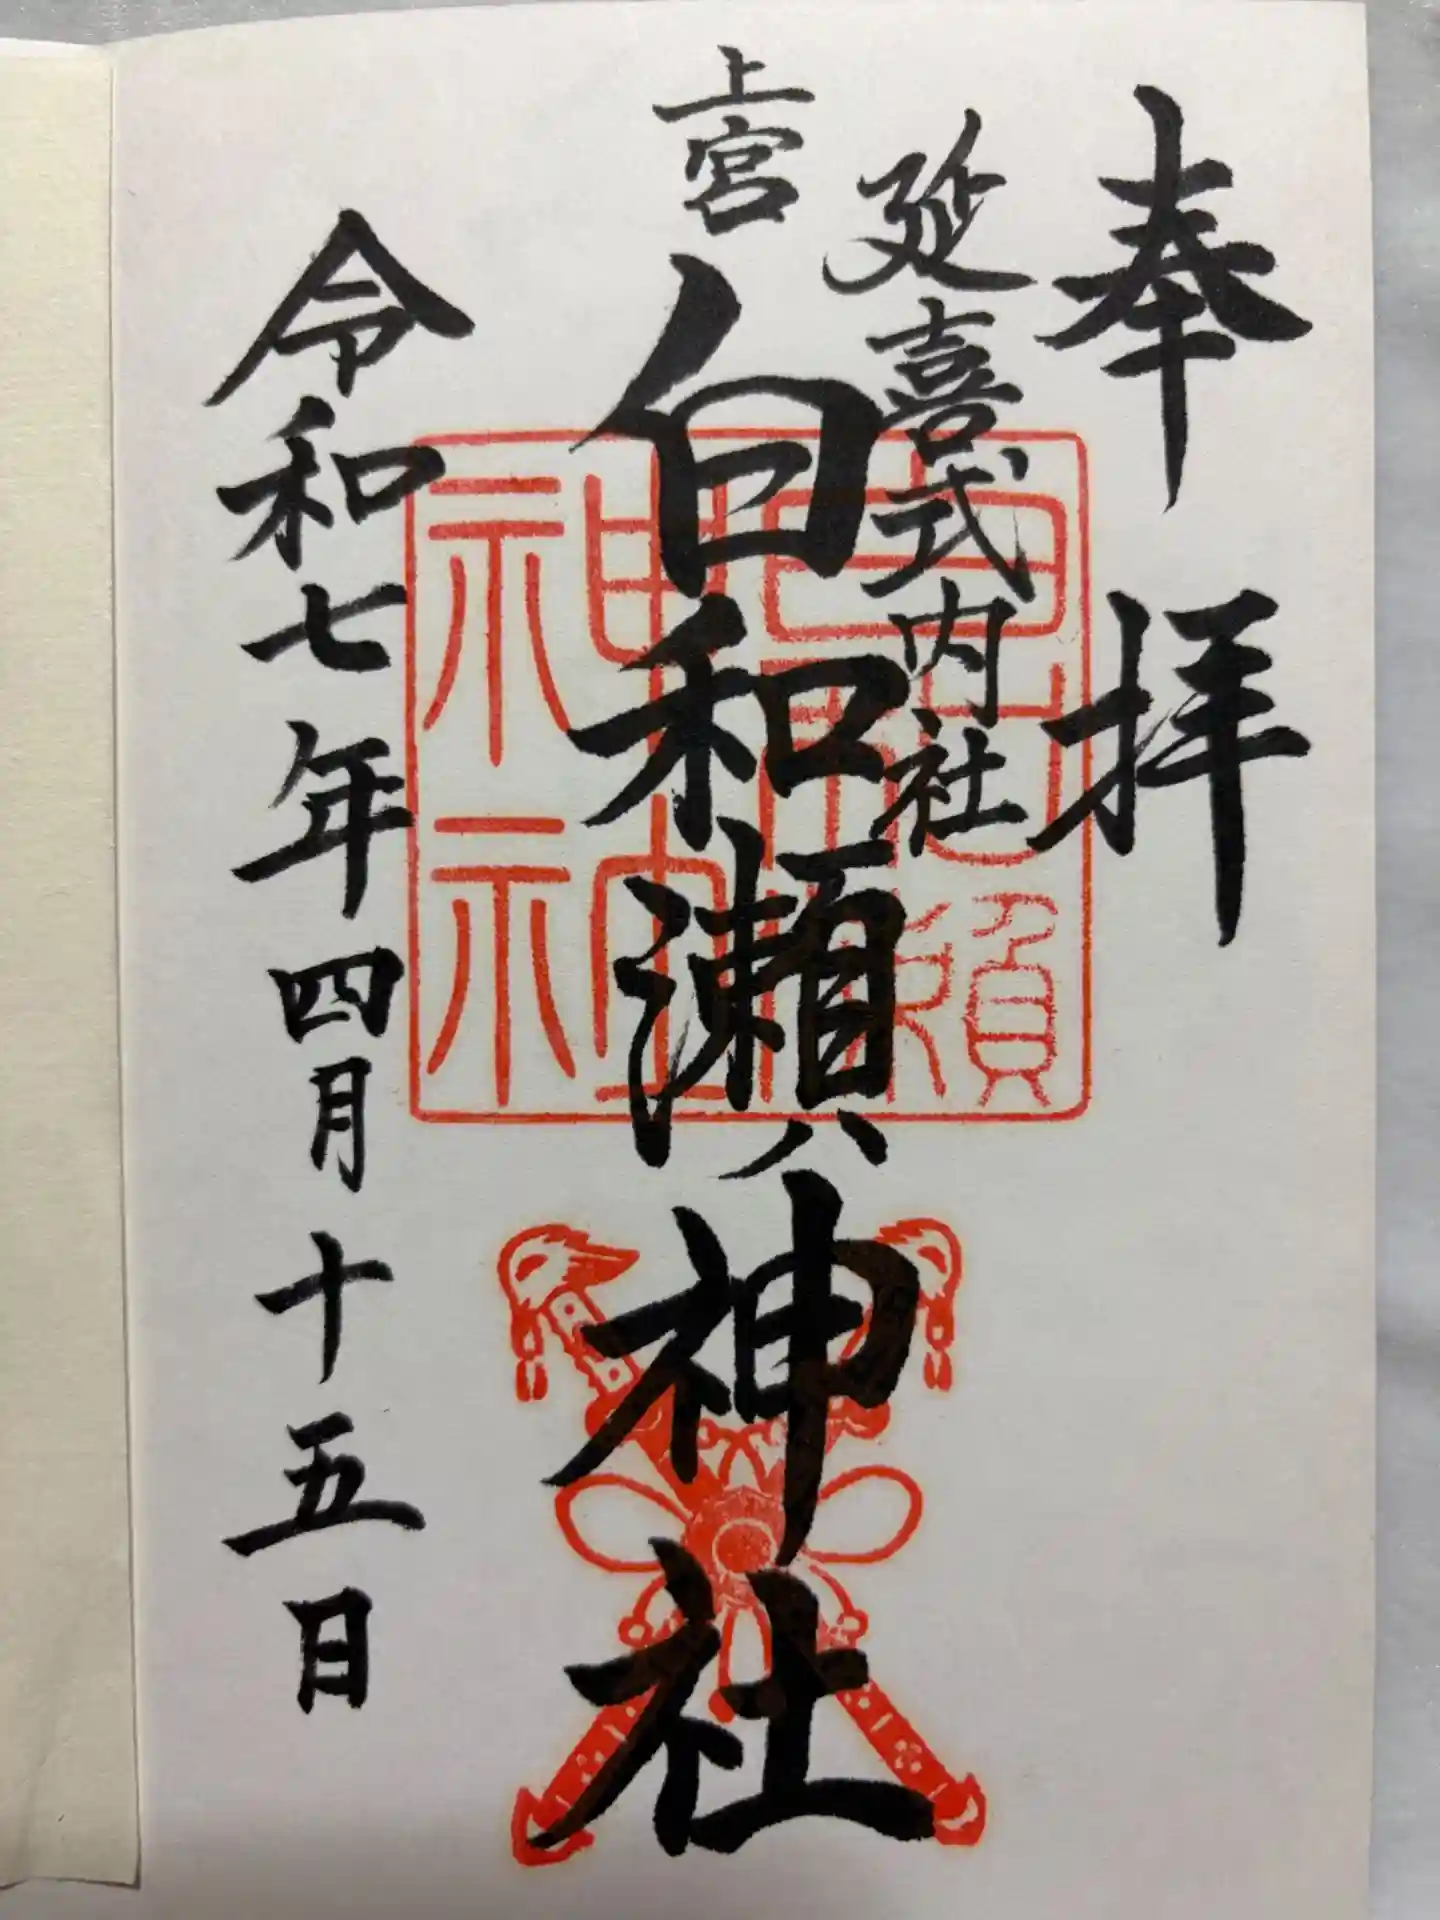 奉拝
延喜式内社
上宮
白和瀬神社
令和七年四月十五日
白和瀬
神社